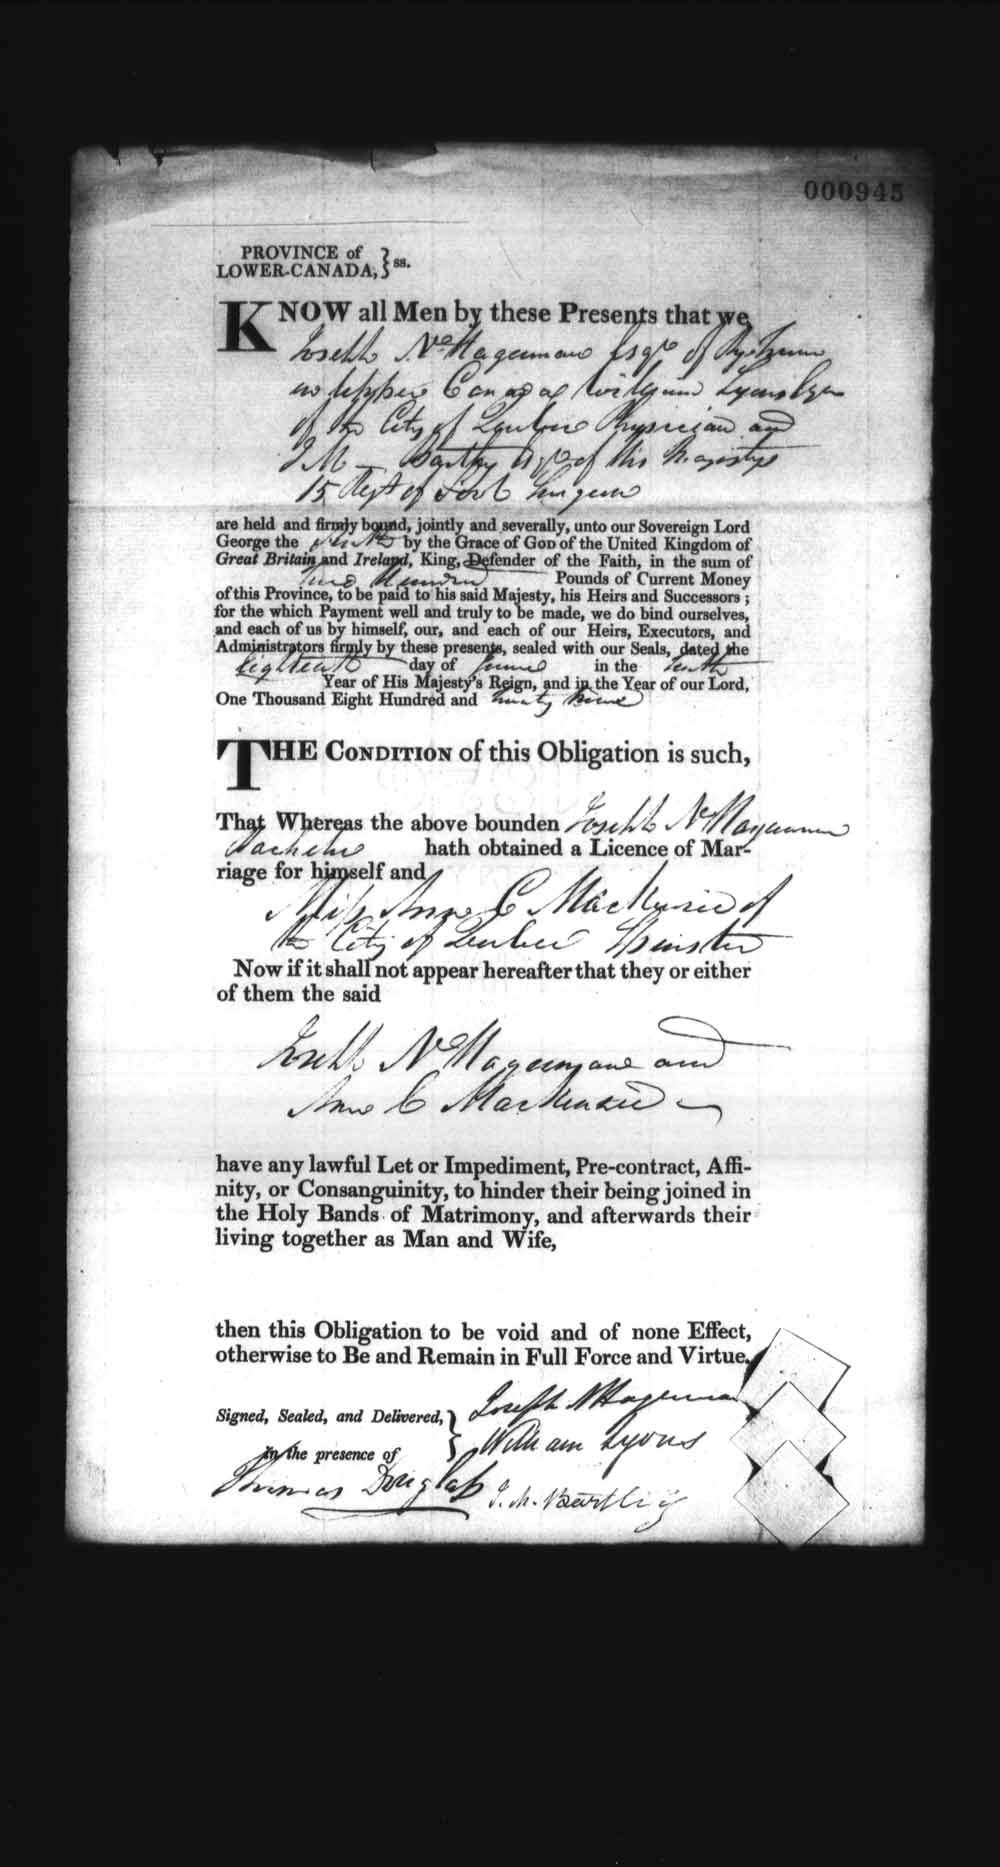 000945
PROVINCE of
LOWER-CANADA, } ss.
KNOW all Men by these Presents that we
Joseph N. Hagerman Esqr of
in Upper Canada William Lyons Esqr
of the City of Quebec Physician and
J M Bartley Esqr of His Majestys
15 Regt of Foot Surgeon
are held and firmly bound, jointly and severally, unto our Sovereign Lord
George the fourth by the Grace of GOD of the United Kingdom of
Great Britain and Ireland, King, Defender of the Faith, in the sum of
Two Hundred Pounds of Current Money
of this Province, to be paid to his said Majesty, his Heirs and Successors ;
for the which Payment well and truly to be made, we do bind ourselves,
and each of us by himself, our, and each of our Heirs, Executors, and
Administrators firmly by these presents, sealed with our Seals, dated the
Eighteenth day of June in the tenth
Year of His Majesty's Reign, and in the Year of our Lord,
One Thousand Eight Hundred and twenty Nine
THE CONDITION of this Obligation is such,
That Whereas the above bounden Joseph N Hagerman
Bachelor hath obtained a Licence of Mar-
riage for himself and
Miss Anne C MacKenzie of
the City of Quebec Spinster
Now if it shall not appear hereafter that they or either
of them the said
Joseph N Hagerman and
Anne C MacKenzie
have any lawful Let or Impediment, Pre-contract, Affi-
nity, or Consanguinity, to hinder their being joined in
the Holy Bands of Matrimony, and afterwards their
living together as Man and Wife,
then this Obligation to be void and of none Effect,
otherwise to Be and Remain in Full Force and Virtue.
Signed, Sealed, and Delivered, } Joseph N Hagerman
in the presence of William Lyons
Thomas Douglass J. M. Bartley